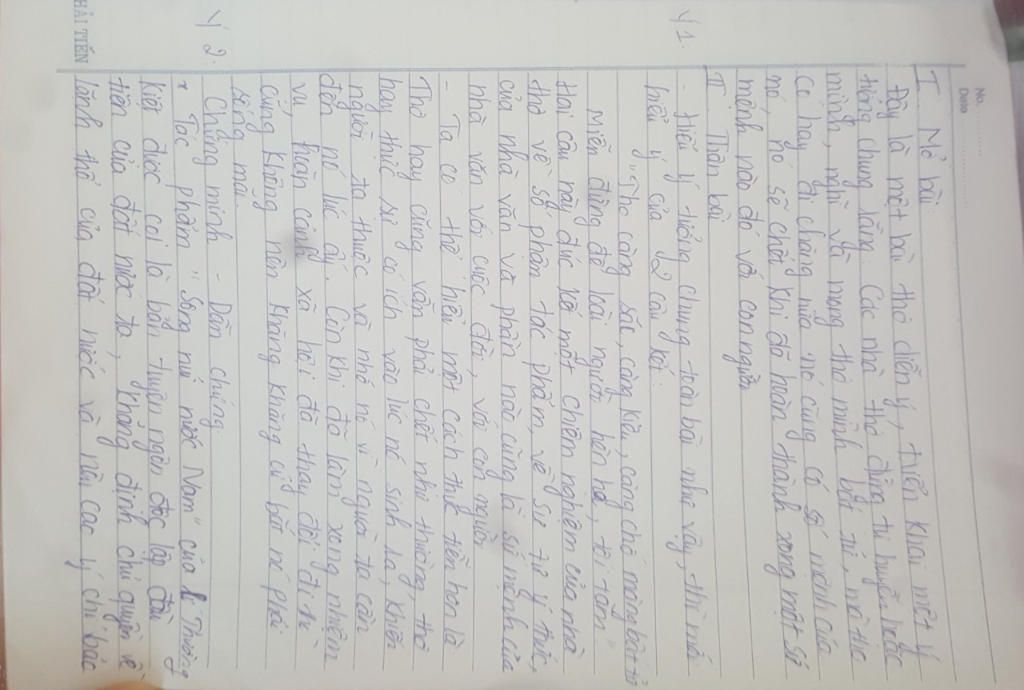 No.
Date
I. Mở bài:
Đây là một bài thơ diễn ý, triển khai một ý
tưởng chung rằng: Các nhà thơ đừng tự huyễn hoặc
mình, nghĩ và mong thơ mình bất tử, mà thơ
có hay đi chăng nữa nó cũng có số mệnh của
nó, nó sẽ chết khi đã hoàn thành xong một sứ
mệnh nào đó với con người
II. Thân bài
Ý 1.
- Hiểu ý tưởng chung toàn bài như vậy, thì mới
hiểu ý của 2 câu kết:
"Thơ càng sắc, càng kiêu, càng chớ mong bất tử
Miễn đừng để loài người hèn hạ, tối tăm"
Hai câu này đúc kết một chiêm nghiệm của nhà
thơ về số phận tác phẩm, về sự tự ý thức
của nhà văn và phần nào cũng là sứ mệnh của
nhà văn với cuộc đời, với con người
- Ta có thể hiểu một cách thực tiễn hơn là
Thơ hay cũng vẫn phải chết như thường, thơ
hay thực sự có ích vào lúc nó sinh ra, khiến
người ta thuộc và nhớ nó vì người ta cần
đến nó lúc ấy. Còn khi đã làm xong nhiệm
vụ, hoàn cảnh xã hội đã thay đổi đi thì
cũng không nên khăng khăng cứ bắt nó phải
sống mãi.
Ý 2:
Chứng minh - Dẫn chứng
* Tác phẩm "Sông núi nước Nam" của Thường
Kiệt được coi là bản tuyên ngôn độc lập đầu
tiên của đất nước ta, khẳng định chủ quyền về
lãnh thổ của đất nước và nêu cao ý chí bác
HẢI TIẾN